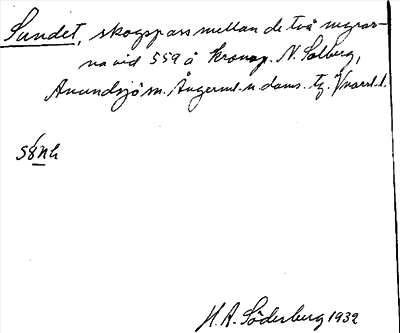 Sundet, skogspass mellan de två myrar-
na vid 559 å kronop. N. Solberg,
Anundsjö sn. Ångerml. n. doms. tg. Vnorrl. l.
H. A. Söderberg 1932